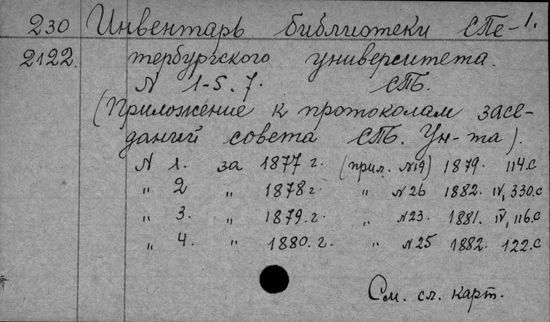 230 Инвентарь библиотеки СПе- 1.
2122. тербургского университета.
N 1-5. 7. СПб.
(Приложение к протоколам засе-
даний совета СПб. Ун-та).
N 1. за 1877 г. (прил. N19) 1879. 114.с
„ 2 „ 1878 г. „ N26 1882. IV, 330.с
„ 3. „ 1879.г. „ N23. 1881. IV, 116.с
„ 4. „ 1880.г. „ N25 1882. 122.с
См. сл. карт.